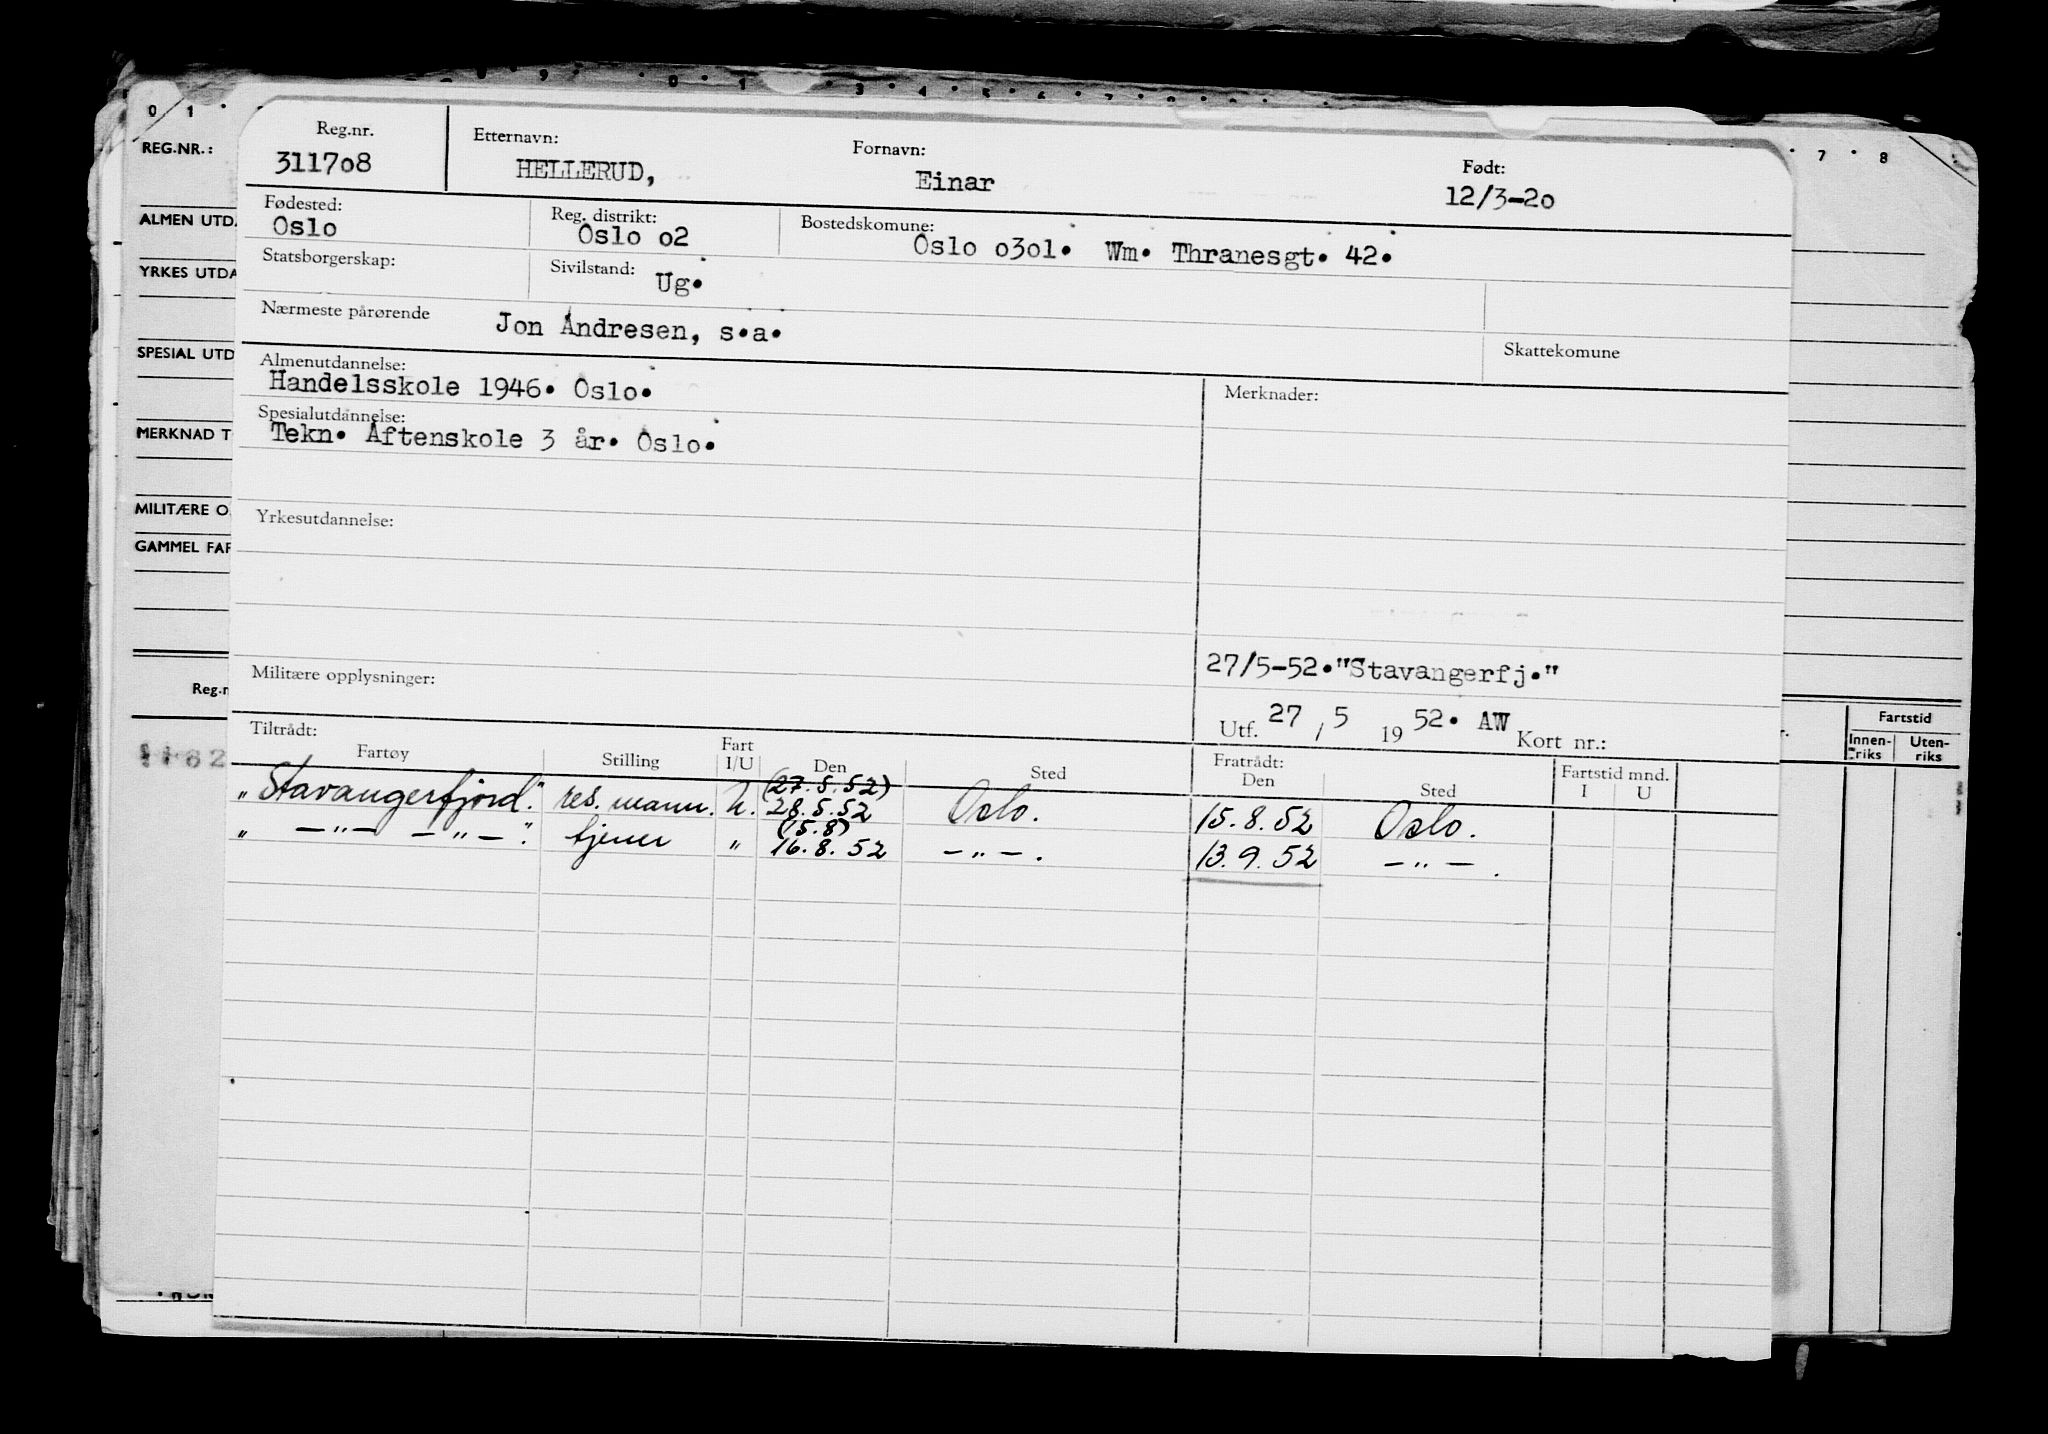 0 1 9 0 1 3 4 5 6 7 7 8
REG.NR.:
ALMEN UTDA
YRKES UTDA
SPESIAL UTD
MERKNAD T
MILITÆRE O
GAMMEL FAR
Reg.n
1182
Reg.nr. Etternavn: Fornavn: Født:
311708 HELLERUD, Einar 12/3-20
Fødested: Reg. distrikt: Bostedskomune:
Oslo Oslo o2 Oslo o3o1. Wm. Thranesgt. 42.
Statsborgerskap: Sivilstand: Ug.
Nærmeste pårørende Jon Andresen, s.a.
Skattekomune
Almenutdannelse: Merknader:
Handelsskole 1946. Oslo.
Spesialutdannelse:
Tekn. Aftenskole 3 år. Oslo.
Yrkesutdannelse:
27/5-52."Stavangerfj."
Militære opplysninger:
Utf. 27 / 5 19 52. AW Kort nr.:
Tiltrådt: Fratrådt:
Fartøy Stilling Fart I/U Den Sted Den Sted Fartstid mnd. I U
(27.5.52)
"Stavangerfjord." res. mann. U. 28.5.52 Oslo. 15.8.52 Oslo.
(15.8)
" —"— —"—". tjener " 16.8.52 —"—. 13.9.52 —"—.
Fartstid
Innen-riks Uten-riks